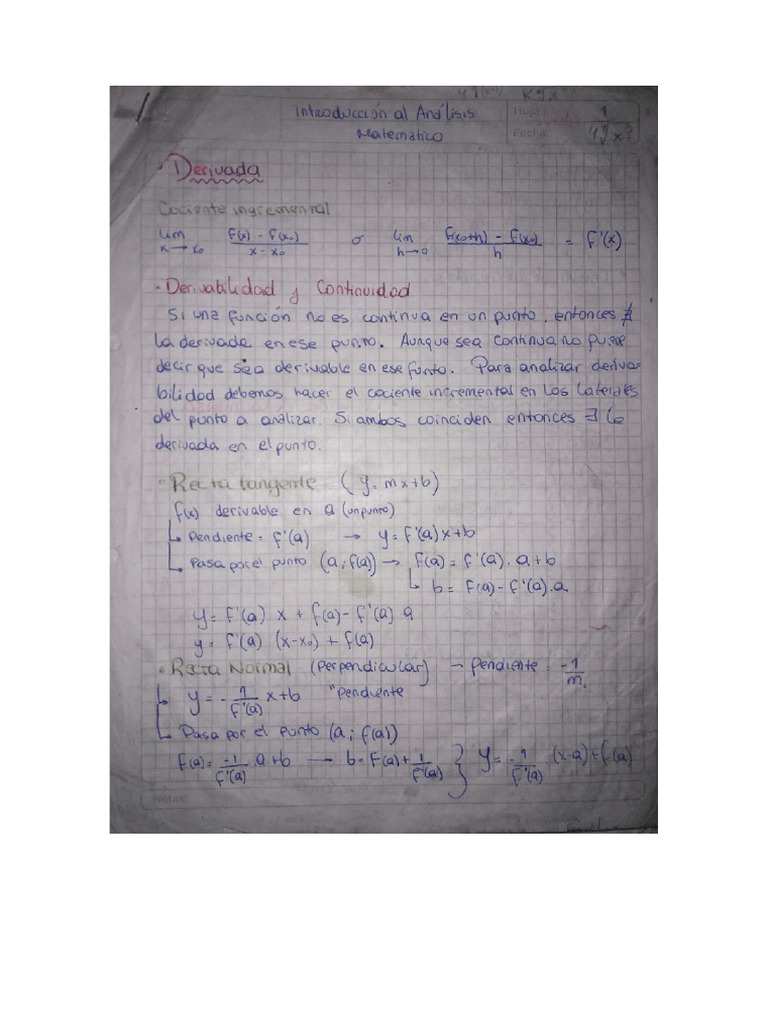 Introducción al Análisis
Matemático
Hoja:
Fecha:
1
• Derivada
Cociente incremental
lim x→x₀ (f(x) - f(x₀))/(x - x₀) o lim h→0 (f(x₀+h) - f(x₀))/h = f'(x)
• Derivabilidad y Continuidad
Si una función no es continua en un punto, entonces ∄
la derivada en ese punto. Aunque sea continua no puede
decir que sea derivable en ese punto. Para analizar deriva-
bilidad debemos hacer el cociente incremental en los laterales
del punto a analizar. Si ambos coinciden entonces ∃ la
derivada en el punto.
• Recta tangente (y = mx+b)
f(x) derivable en a (un punto)
Pendiente = f'(a) → y = f'(a)x+b
Pasa por el punto (a ; f(a)) → f(a) = f'(a) . a + b
b = f(a) - f'(a) . a
y = f'(a) x + f(a) - f'(a) a
y = f'(a) . (x-x₀) + f(a)
• Recta Normal (perpendicular) → pendiente = -1/m
y = -1/f'(a) x+b "pendiente
Pasa por el punto (a ; f(a))
f(a) = -1/f'(a) . a+b → b = f(a) + 1/f'(a) } y = -1/f'(a) . (x-a) + f(a)
Notas